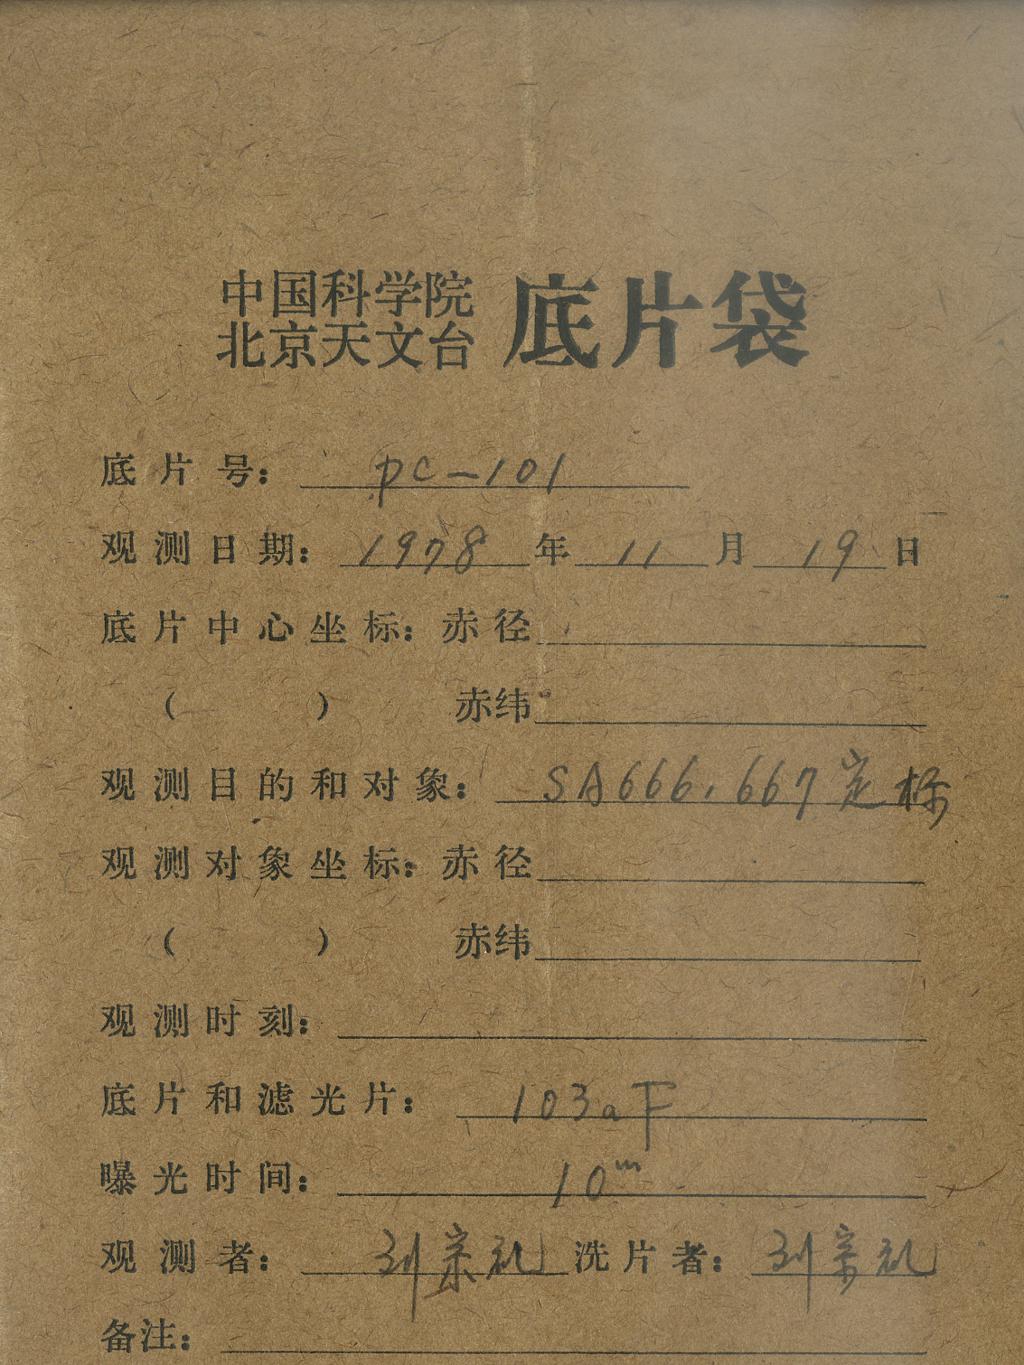 中国科学院
北京天文台 底片袋
底片号: pc-101
观测日期: 1978 年 11 月 19 日
底片中心坐标: 赤径
( ) 赤纬
观测目的和对象: SA666, 667定标
观测对象坐标: 赤径
( ) 赤纬
观测时刻:
底片和滤光片: 103aF
曝光时间: 10ᵐ
观测者: 刘宗礼 洗片者: 刘宗礼
备注: